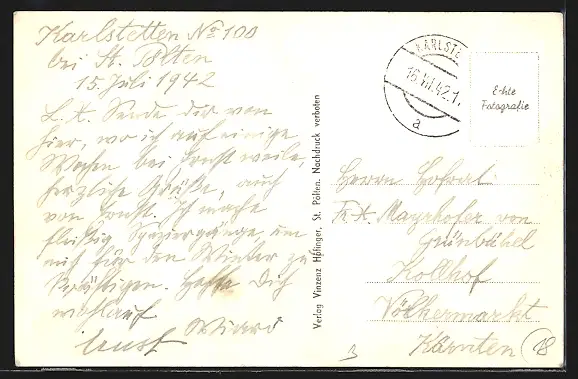 Karlstetten No 100
bei St. Pölten
15. Juli 1942
L. X. Sende dir von
hier, wo ich auf einige
Wochen bei Ernst weile,
herzliche Grüße, auch
von Ernst. Ich mache
fleißig Spaziergänge um
mich für den Winter zu
kräftigen. Hoffe Dich
wohlauf
Ernst
KARLSTE
16.VII.42.1
a
Echte
Fotografie
Verlag Vinzenz Höfinger, St. Pölten. Nachdruck verboten
Herrn Hofrat
Mayrhofer von
Grünbühel
Kollhof
Völkermarkt
Kärnten
18
3